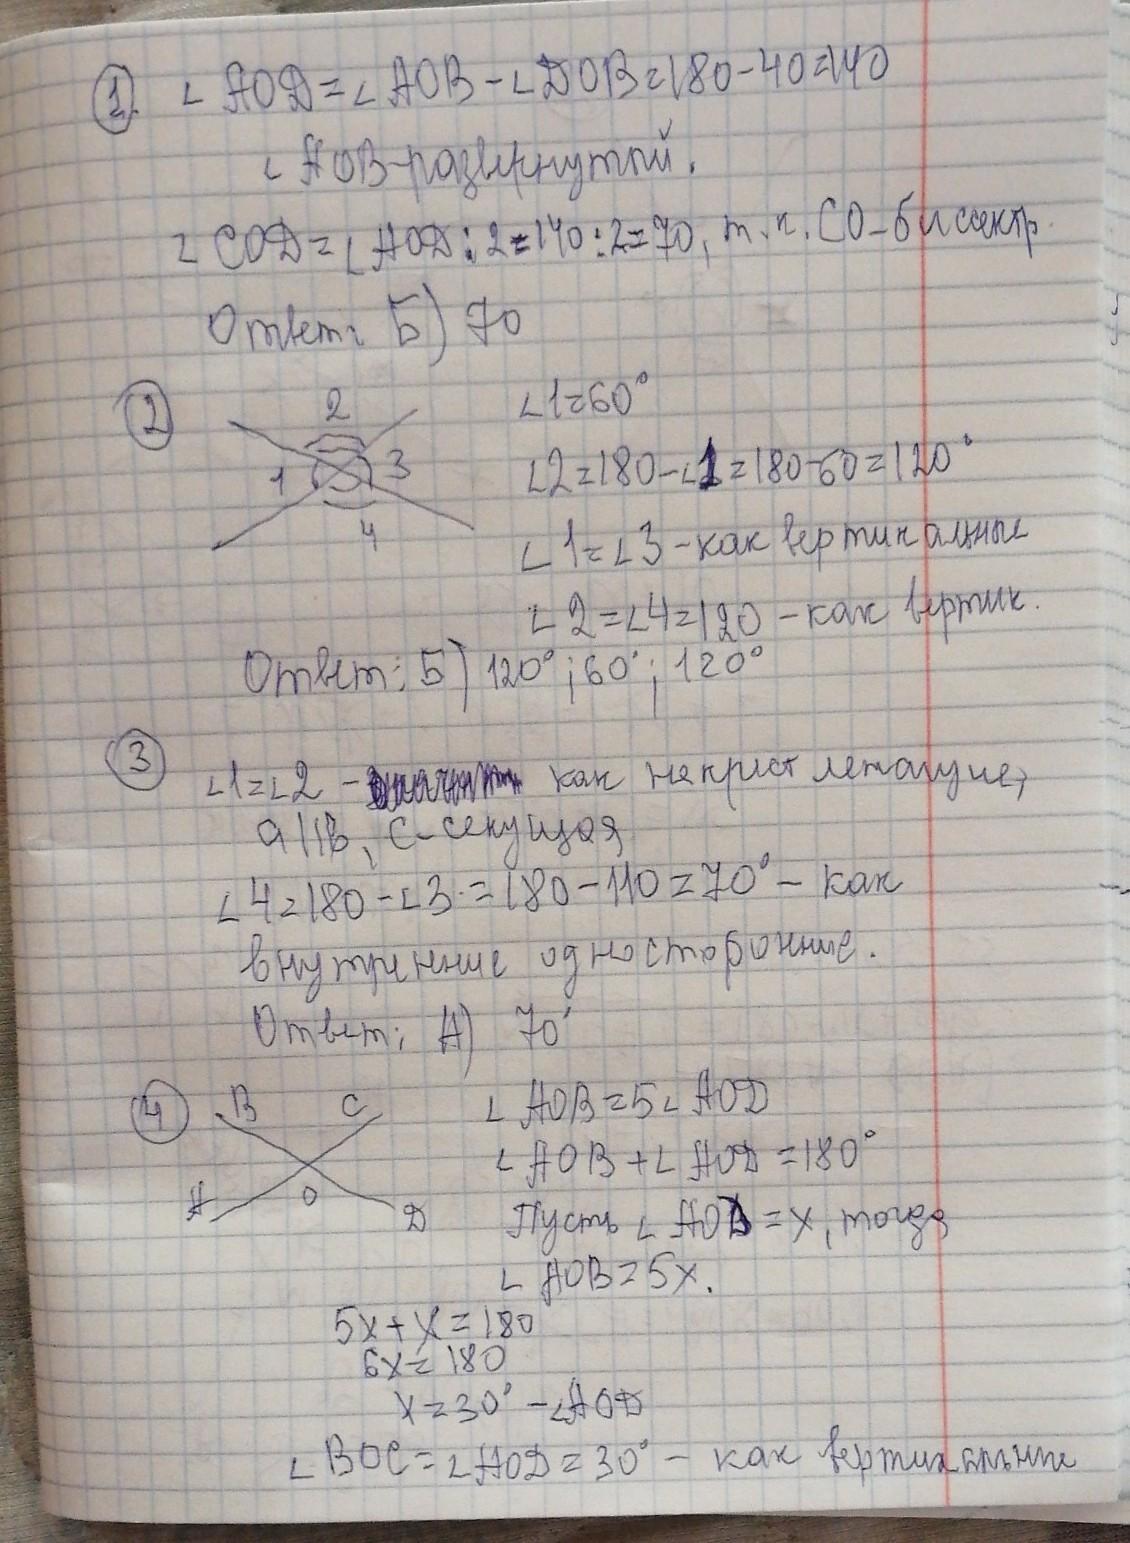 1. ∠AOD=∠AOB-∠DOB=180-40=140
∠AOB-развернутый.
∠COD=∠AOD:2=140:2=70, т.к. CO-биссектр.
Ответ: Б) 70
2
2
1
3
4
∠1=60°
∠2=180-∠1=180-60=120°
∠1=∠3-как вертикальные
∠2=∠4=120-как вертик.
Ответ: Б) 120°; 60°; 120°
3
∠1=∠2 - как накрест лежащие,
a||b, c-секущая
∠4=180-∠3=180-110=70°- как
внутренние односторонние.
Ответ: А) 70°
4
B C
A O D
∠AOB=5∠AOD
∠AOB+∠AOD=180°
Пусть ∠AOD=x, тогда
∠AOB=5x.
5x+x=180
6x=180
x=30°-∠AOD
∠BOC=∠AOD=30°- как вертикальные